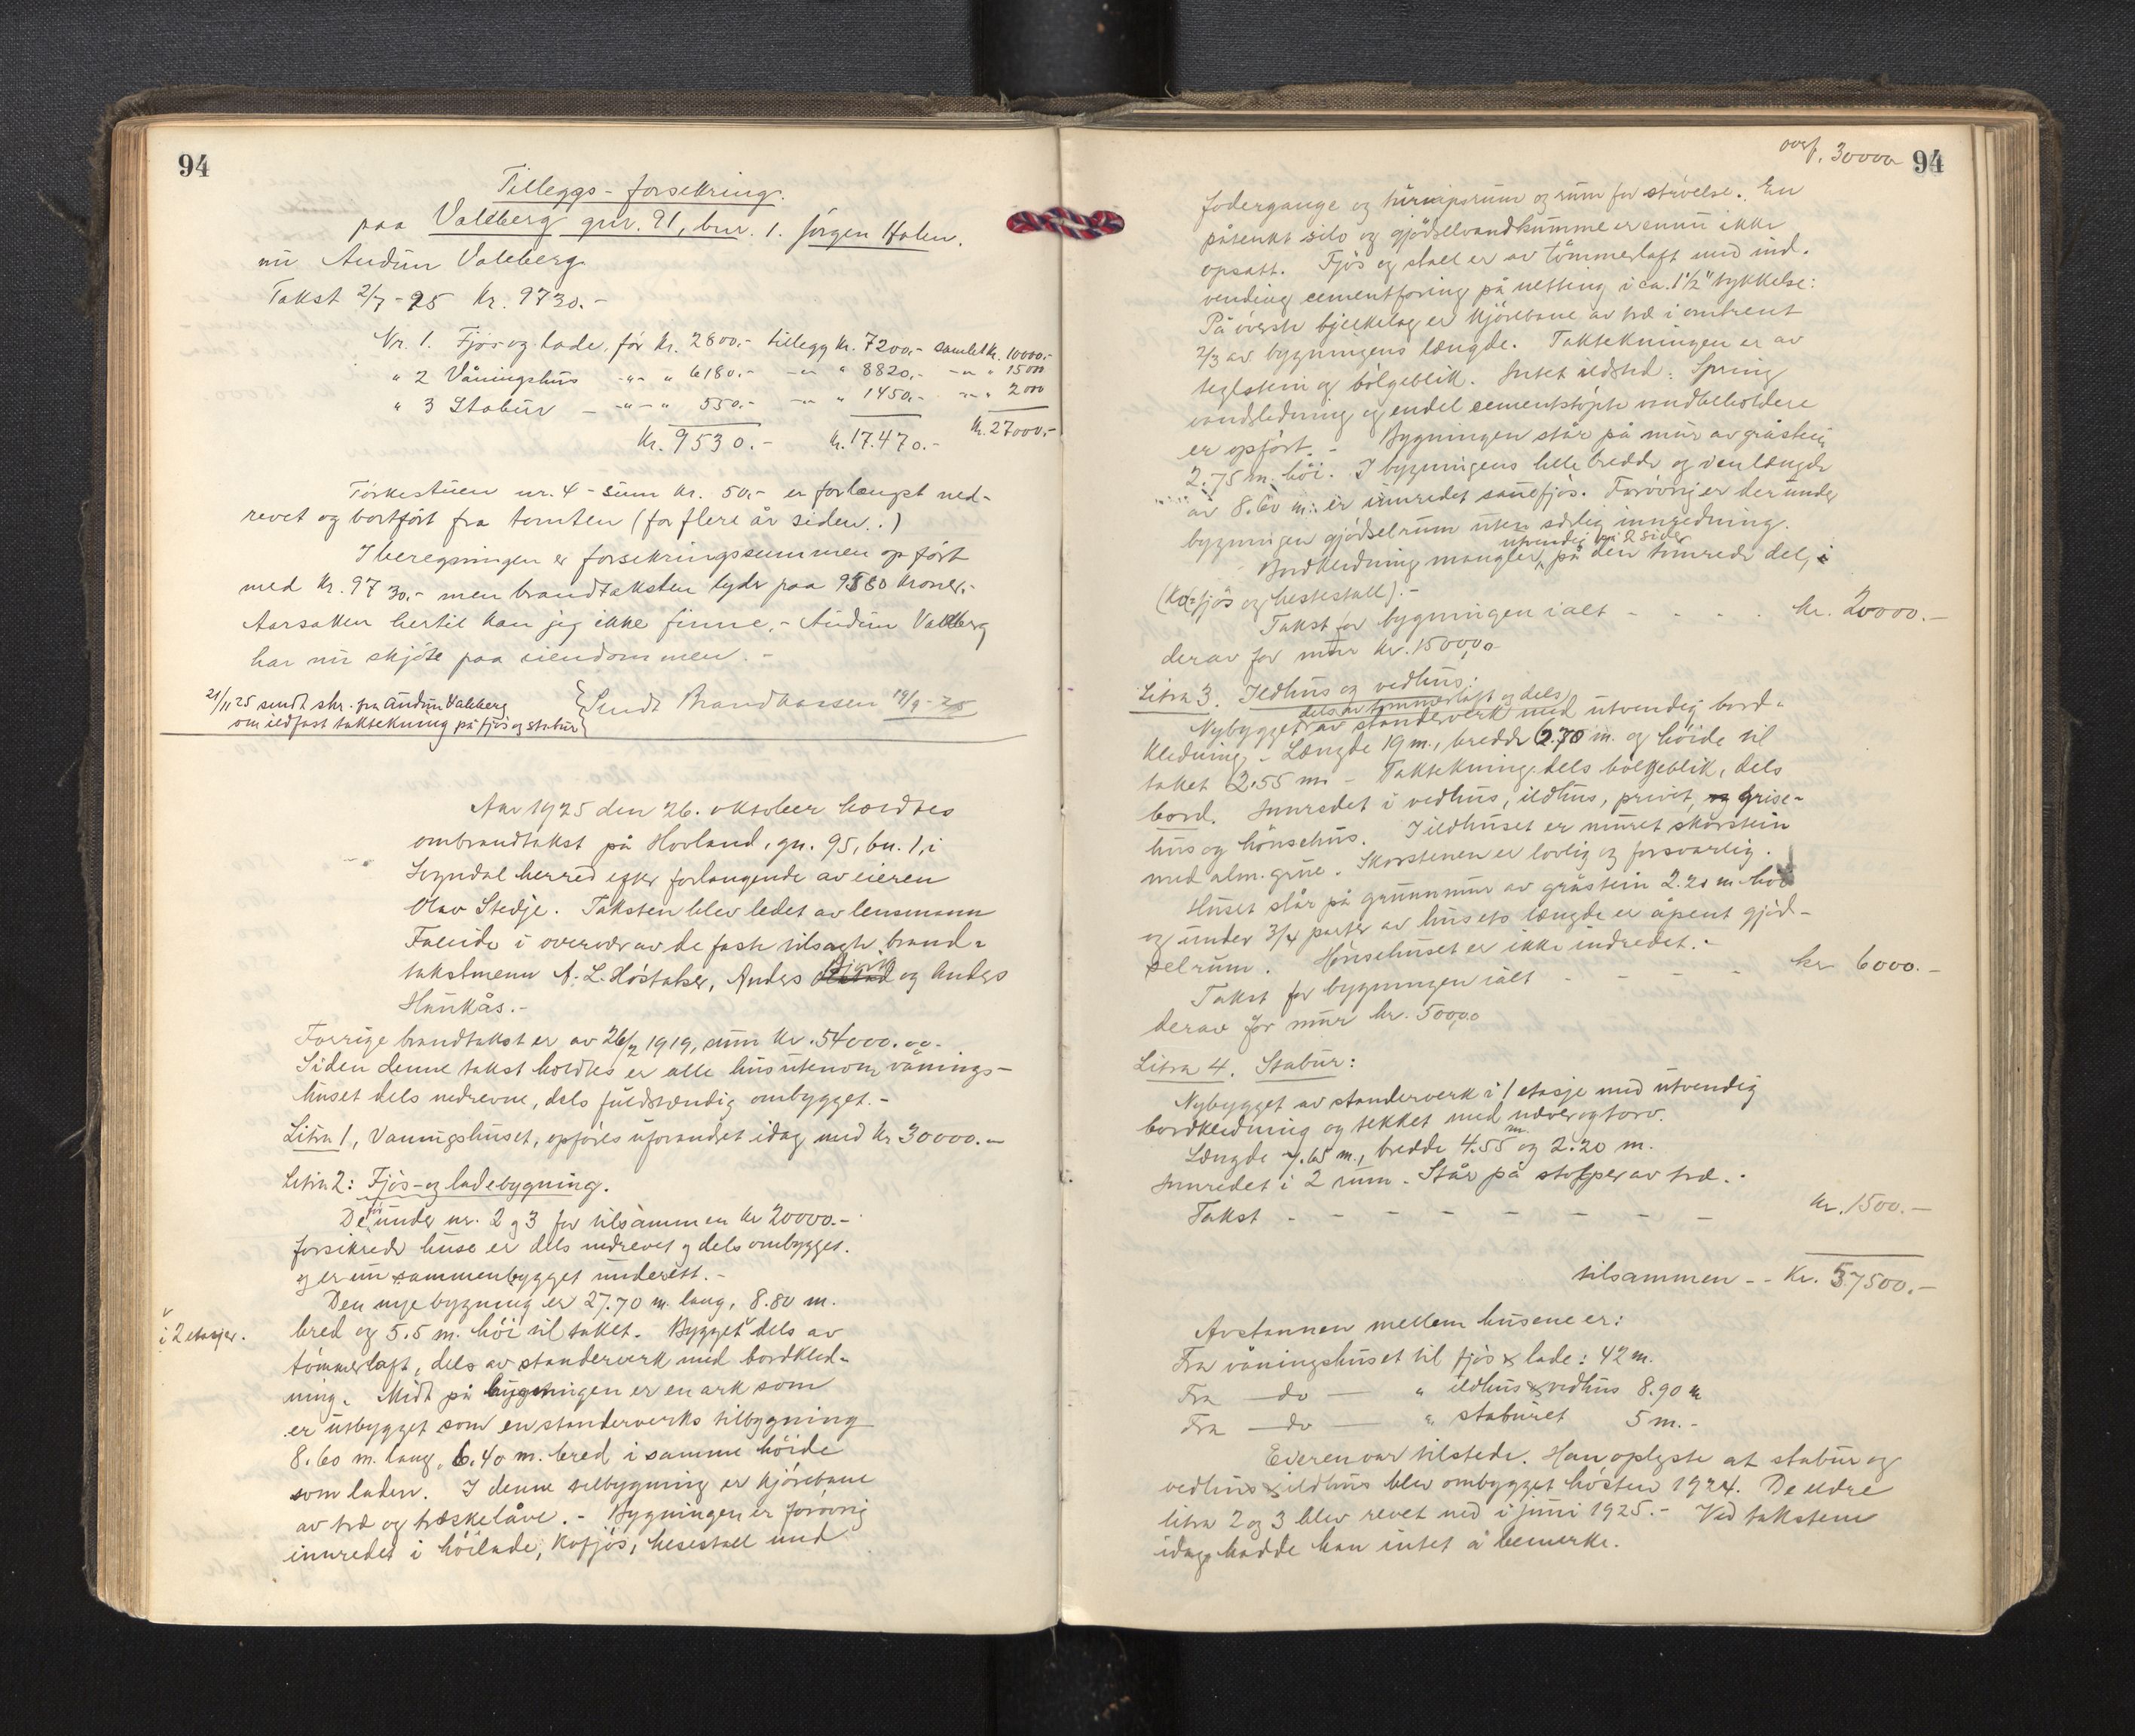 94
Tilleggs-forsekring.
paa Valeberg gnr. 91, bnr. 1. Jörgen Halem.
nu Audun Valeberg
Takst 2/7-25 Kr. 9730.-
Nr. 1. Fjös og lade, för kr. 2800.- tillegg kr. 7200.- samlet kr. 10000.-
" 2 Våningshus -"- " 6180.- -"- " 8820.- -"- " 15000
" 3 Stabur - -"-"- " 550.- -"- " 1450.- -"- " 2000
Kr. 9530.- Kr. 17.470.- Kr. 27000.-
Törkestuen nr. 4 - sum kr. 50.- er forlængst ned-
revet og bortfört fra tomten (for flere år siden.)
I beregningen er forsekringssummen opfört
med kr. 9730.- men brandtaksten lyder paa 9580 kroner.-
Aarsaken hertil kan jeg ikke finne.- Audun Valeberg
har nu skjöte paa eiendommen.-
21/11 25 sendt skr. fra Audun Valeberg
om ildfast taktekning på fjös og stabur
Sendt Brandkassen 19/9-25
Aar 1925 den 26. oktober holdtes
ombrandtakst på Hovland, gn. 95, bn. 1, i
Sogndal herred efter forlangende av eieren
Olav Stedje. Taksten blev ledet av lensmann
Faleide i overvær av de faste tilsagte brand-
takstmenn A. L. Höstaker, Anders Bjørk og Anders
Haukås.-
Forrige brandtakst er av 26/2 1919, sum kr. 54000.00.
Siden denne takst holdtes er alle hus utenom vånings-
huset dels nedrevne, dels fuldstændig ombygget.-
Litra 1, Vaningshuset, opføres uforandret idag med kr 30000.-
Litra 2: Fjös- og ladebygning.
De under nr. 2 og 3 for tilsammen kr 20000.-
forsikrede huse er dels nedrevet og dels ombygget.
og er nu sammenbygget underett.-
Den nye bygning er 27.70 m. lang, 8.80 m.
i 2 etasjer.
bred og 5.5 m. höi til taket. Bygget dels av
tömmerlaft, dels av standerverk med bordkled-
ning. Midt på bygningen er en ark som
er utbygget som en standerverks tilbygning
8.60 m. lang, 6.40 m. bred i samme höide
som laden. I denne tilbygning er kjörebane
av træ og træskelåve.- Bygningen er forövrig
innredet i höilade, kofjös, hestestall med
overf. 30000
94
fodergange og turnipsrum og rum for strøelse. En
påtenkt silo og gjödselvandkumme er ennu ikke
opsatt. Fjös og stall er av tömmerlaft med ind-
vendig cementforing på netting i ca. 1½" tykkelse:
På överste bjelkelag er kjörebane av træ i omtrent
2/3 av bygningens længde. Taktekningen er av
teglstein og bölgeblik. Intet ildsted. Spring
vandledning og endel cementstöpte vandbeholdere
er opfört.- Bygningen står på mur av gråstein
2.75 m. höi. I bygningens hele bredde og i en længde
av 8.60 m. er innredet sauefjös. Forövrig er der under
bygningen gjödselrum uten særlig innredning.
utvendig på 2 sider
Bordkledning mangler på den tömrede del, i
(Kofjös og hestestall).-
Takst for bygningen ialt - - - - kr. 20000.-
derav for mur kr. 1500,00
Litra 3. Ildhus og vedhus:
dels av tömmerlaft og dels
Nybygget av standerverk med utvendig bord-
kledning. Længde 19 m., bredde 6.70 m. og höide til
taket 2.55 m. - Taktekning dels bölgeblik, dels
bord. Innredet i vedhus, ildhus, privet, grise-
hus og hönsehus. I ildhuset er muret skorstein
med alm. grue. Skorstenen er lovlig og forsvarlig.
Huset står på grunnmur av gråstein 2.20 m. höi
og under 3/4 parter av husets længde er åpent gjöd-
selrum. Hönsehuset er ikke indredet.-
Takst for bygningen ialt - - - - kr 6000.-
derav for mur kr. 500,00
Litra 4. Stabur:
Nybygget av standerverk i 1 etasje med utvendig
bordkledning og tekket med næver og torv.
Længde 7.65 m., bredde 4.55 m og 2.20 m.
Innredet i 2 rum. Står på stolper av træ.-
Takst - - - - - - - - kr. 1500.-
tilsammen -- Kr. 57500.-
Avstannen mellem husene er:
Fra våningshuset til fjös & lade: 42 m.
Fra — do — " ildhus & vedhus 8.90 m
Fra — do — " staburet 5 m.-
Eieren var tilstede. Han oplyste at stabur og
vedhus & ildhus blev ombygget hösten 1924. De eldre
litra 2 og 3 blev revet ned i juni 1925.- Ved takstene
idag hadde han intet å bemerke.